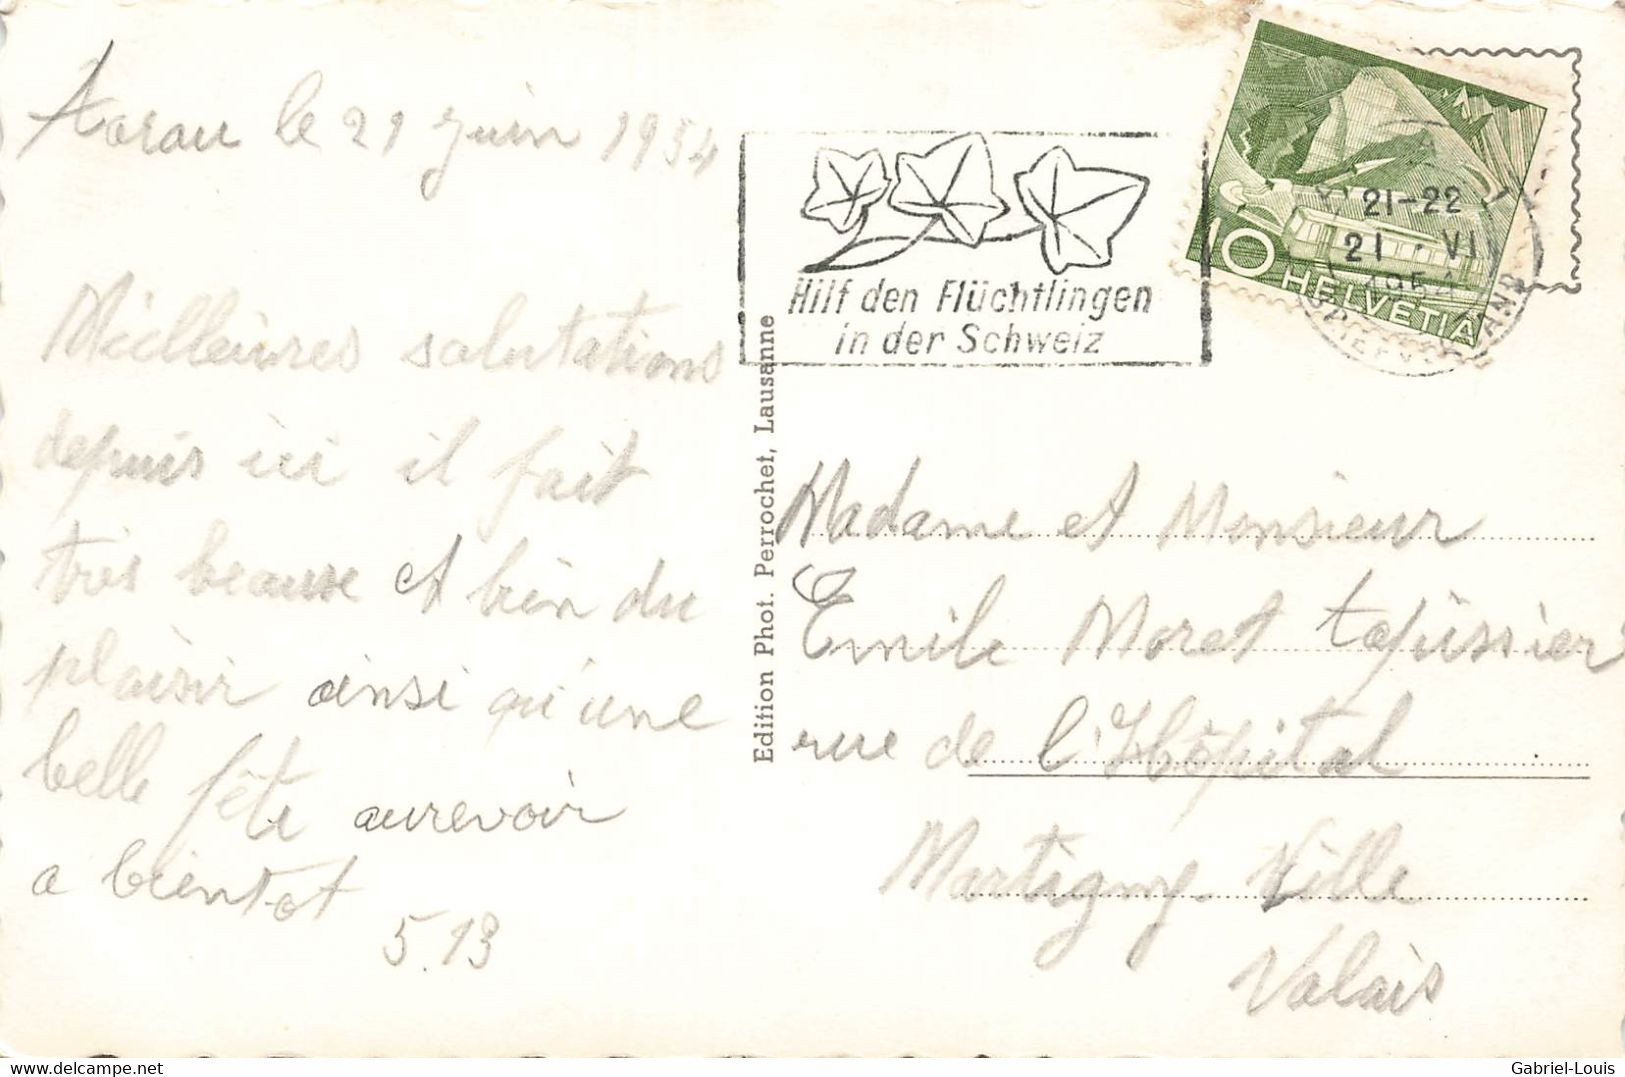 Aarau le 21 juin 1954
Meilleures salutations
depuis ici il fait
très beause et bien du
plaisir ainsi qu'une
belle fête aurevoir
a bientot
5.13
Edition Phot. Perrochet, Lausanne
Hilf den Flüchtlingen
in der Schweiz
10
HELVETIA
21-22
21. VI
1954
BRIEFVERSAND
Madame et Monsieur
Emile Moret tapissier
rue de l'Hôpital
Martigny Ville
Valais
delcampe.net
Gabriel-Louis